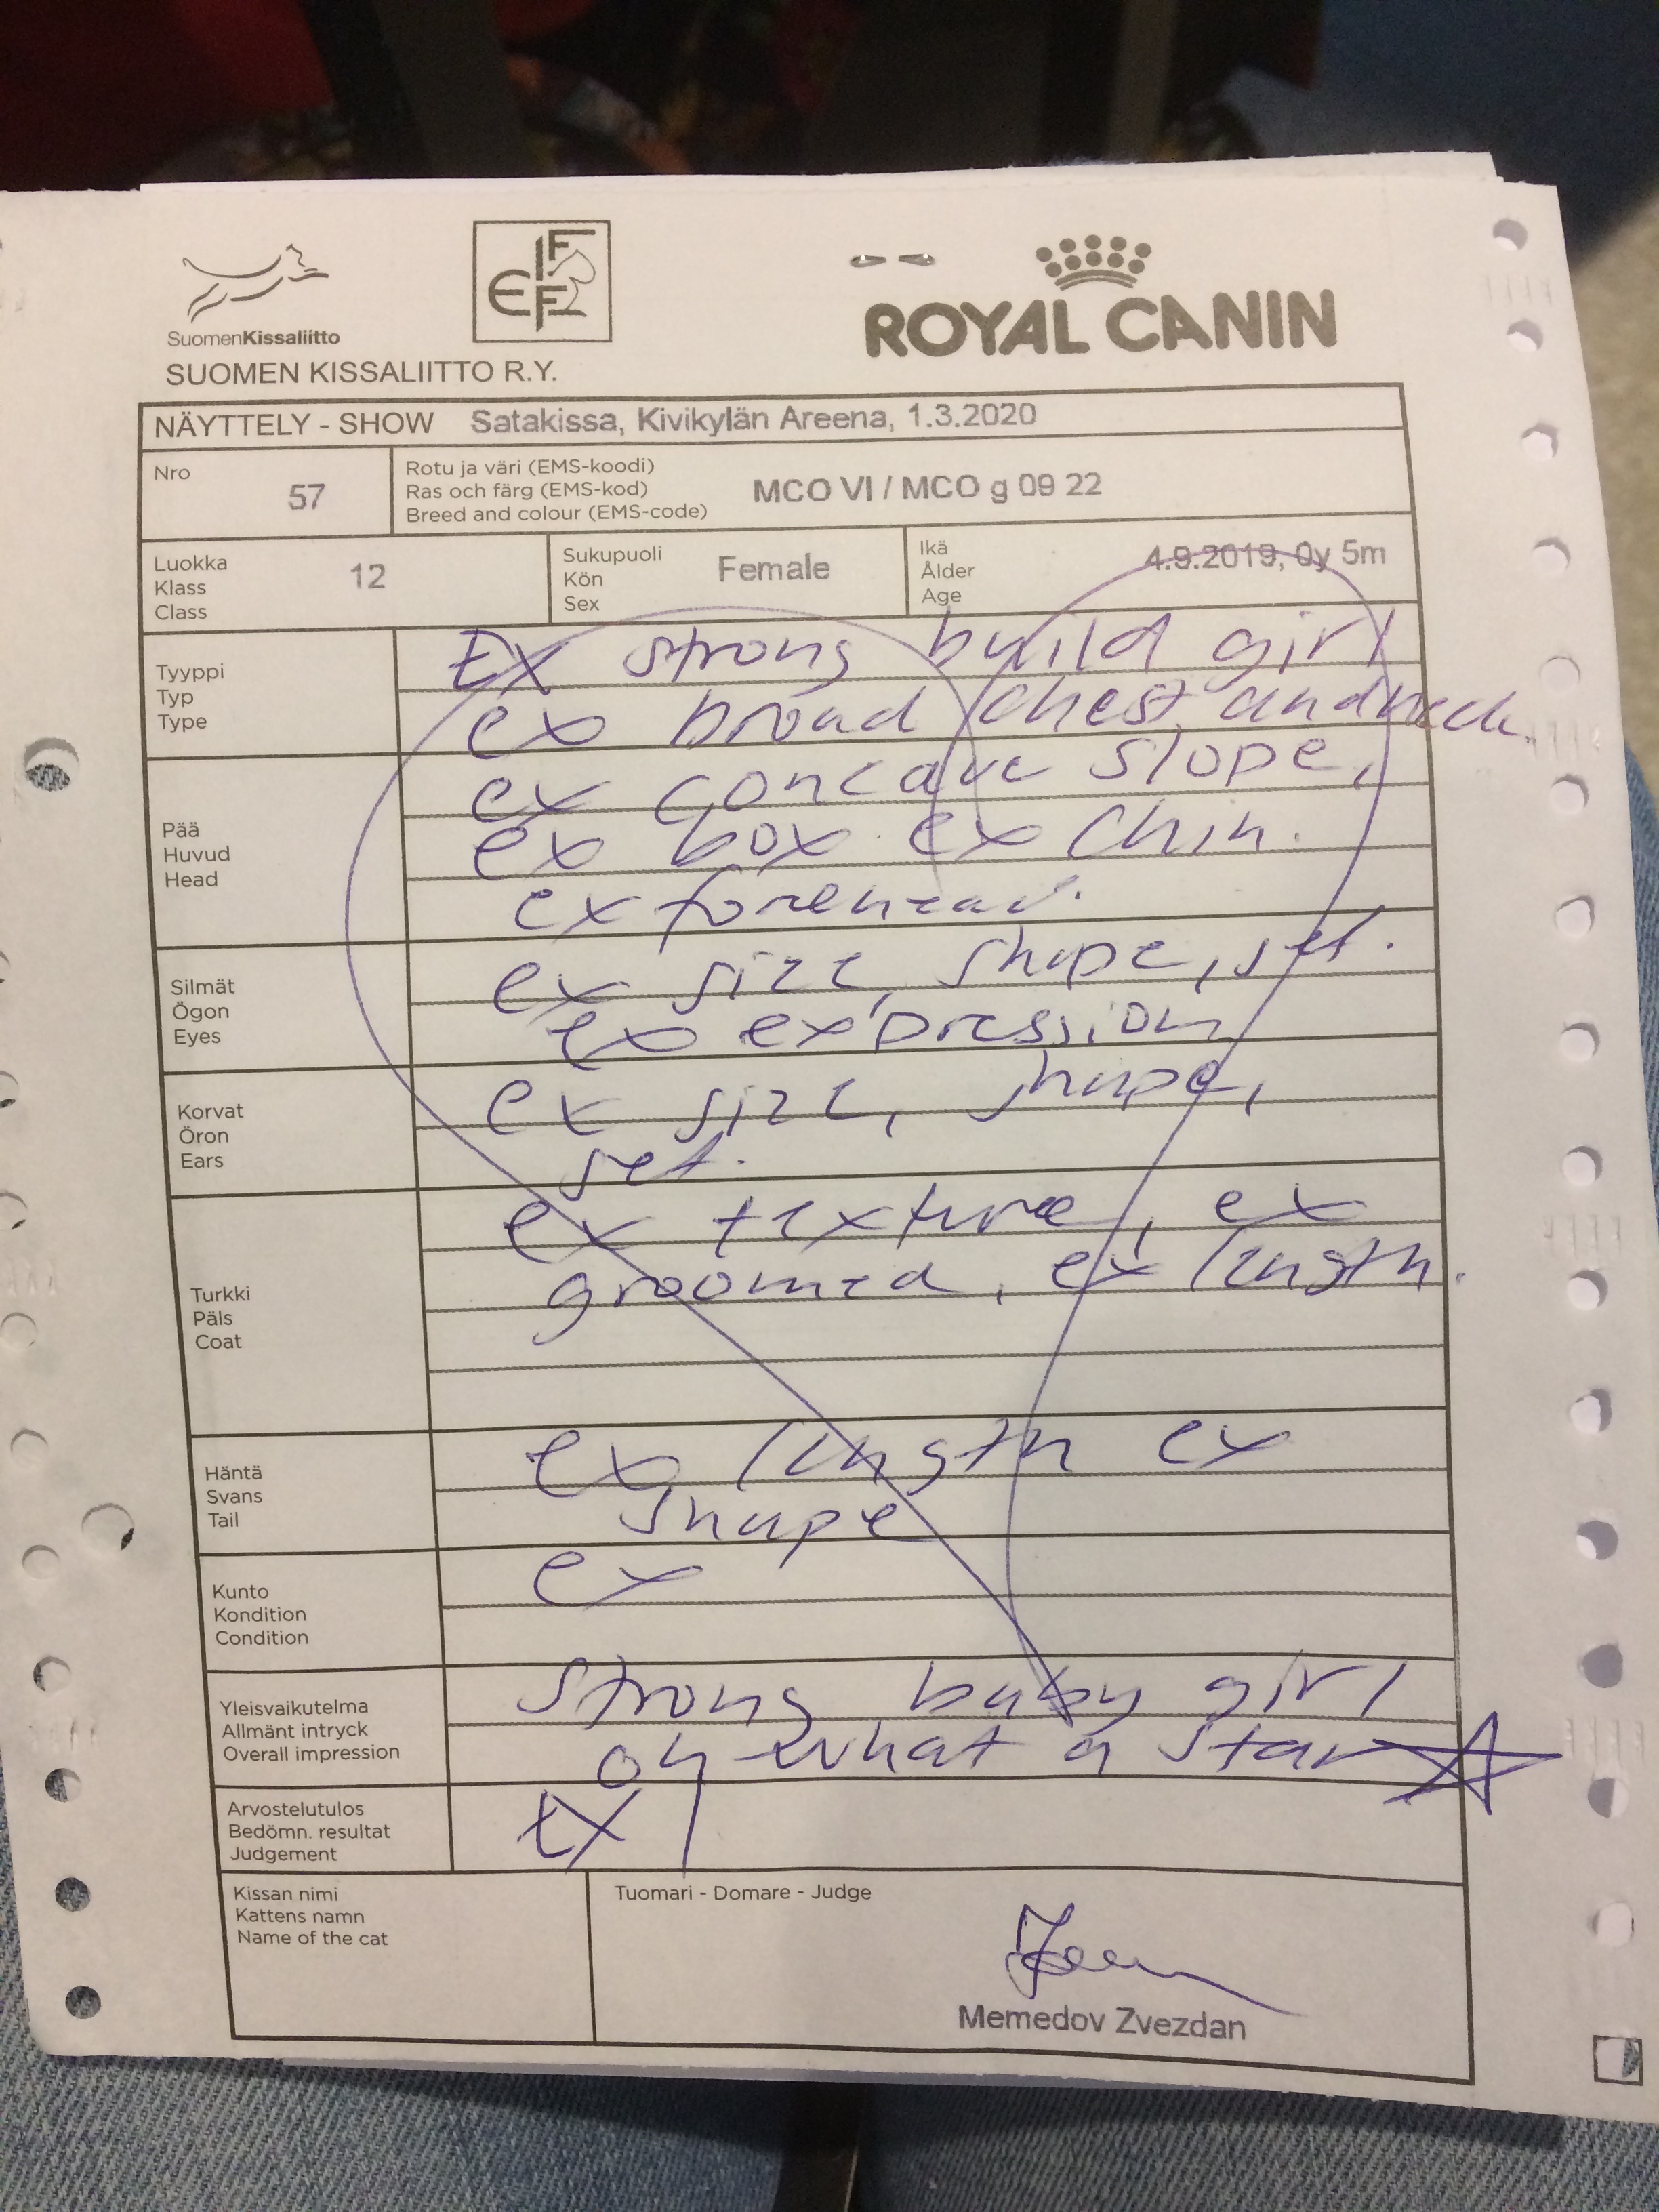 SuomenKissaliitto
SUOMEN KISSALIITTO R.Y.
FIFE
ROYAL CANIN
NÄYTTELY - SHOW Satakissa, Kivikylän Areena, 1.3.2020
Nro 57
Rotu ja väri (EMS-koodi)
Ras och färg (EMS-kod)
Breed and colour (EMS-code)
MCO VI / MCO g 09 22
Luokka
Klass
Class
12
Sukupuoli
Kön
Sex
Female
Ikä
Ålder
Age
4.9.2019, 0y 5m
Tyyppi
Typ
Type
Ex strong build girl
ex broad chest and neck.
Pää
Huvud
Head
ex concave slope,
ex box ex chin.
ex forehead.
Silmät
Ögon
Eyes
ex size, shape, set.
ex expression
Korvat
Öron
Ears
ex size, shape,
set.
Turkki
Päls
Coat
ex texture, ex
groomed, ex length.
Häntä
Svans
Tail
ex length ex
shape
Kunto
Kondition
Condition
ex
Yleisvaikutelma
Allmänt intryck
Overall impression
Strong baby girl
oh what a star
Arvostelutulos
Bedömn. resultat
Judgement
EX 1
Kissan nimi
Kattens namn
Name of the cat
Tuomari - Domare - Judge
Memedov Zvezdan